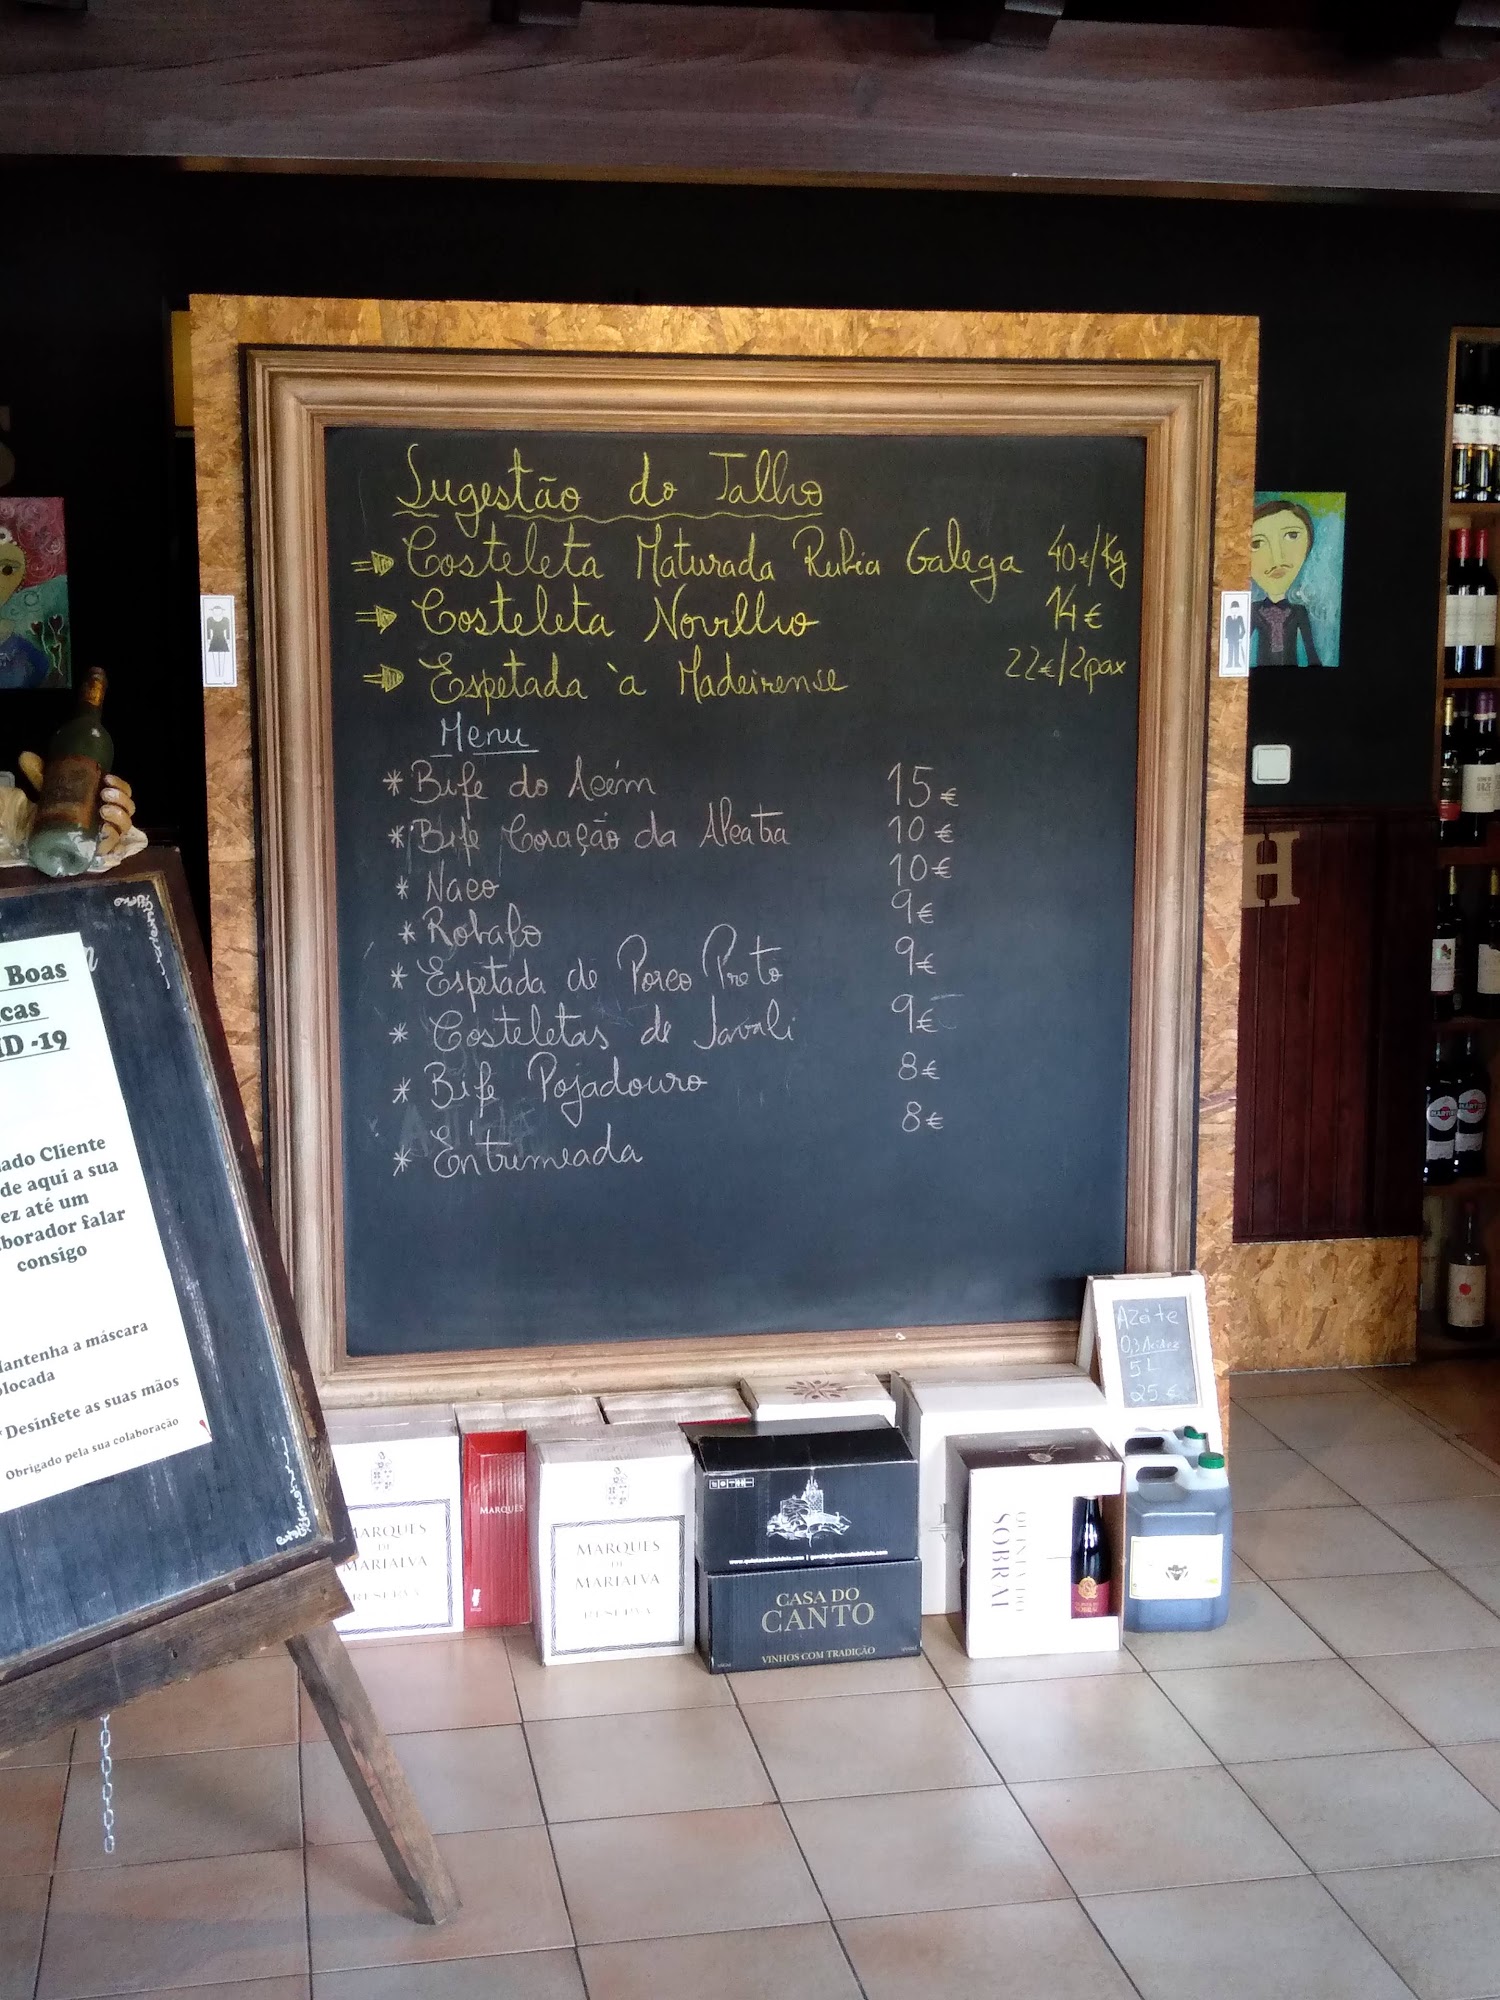 Sugestão do Talho
Costeleta Maturada Rubia Galega 40€/Kg
Costeleta Novilho 14€
Espetada à Madeirense 22€/2pax
Menu
* Bife do Acém 15€
* Bife Coração da Alcatra 10€
* Naco 10€
* Robalo 9€
* Espetada de Porco Preto 9€
* Costeletas de Javali 9€
* Bife Pojadouro 8€
* Entremeada 8€
Boas
cas
ID -19
ado Cliente
de aqui a sua
ez até um
borador falar
consigo
antenha a máscara
olocada
*Desinfete as suas mãos
Obrigado pela sua colaboração
H
Azeite
0,3 Acidez
5 L
25 €
MARQUES
DE
MARIALVA
RESERVA
MARQUES
MARQUES
DE
MARIALVA
RESERVA
CASA DO
CANTO
VINHOS COM TRADIÇÃO
QUINTA DO
SOBRAL
MARTINI
MARTINI